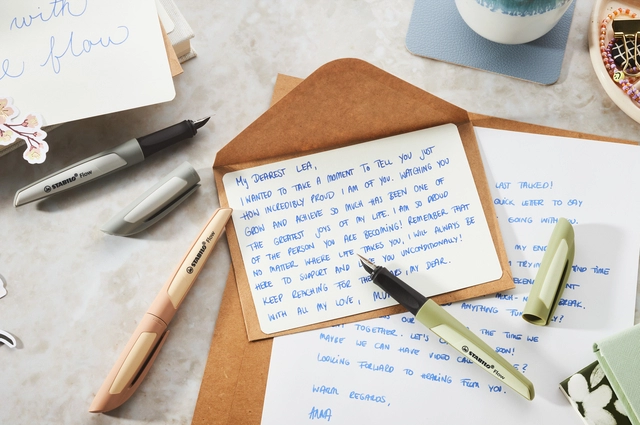 with
flow
STABILO flow
STABILO flow
STABILO flow
My DEAREST LEA,
I WANTED TO TAKE A MOMENT TO TELL YOU JUST
HOW INCREDIBLY PROUD I AM OF YOU. WATCHING YOU
GROW AND ACHIEVE SO MUCH HAS BEEN ONE OF
THE GREATEST JOYS OF MY LIFE. I AM SO PROUD
OF THE PERSON YOU ARE BECOMING! REMEMBER THAT
NO MATTER WHERE LIFE TAKES YOU, I WILL ALWAYS BE
HERE TO SUPPORT AND LOVE YOU UNCONDITIONALLY!
KEEP REACHING FOR THE MY DEAR.
WITH ALL MY LOVE,
LAST TALKED!
QUICK LETTER TO SAY
GOING WITH YOU.
MY
TIME
BREAK.
OUR
TOGETHER. LET'S THE TIME WE
MAYBE WE CAN HAVE VIDEO SOON!
LOOKING FORWARD TO HEARING FROM YOU.
WARM REGARDS,
ANNA